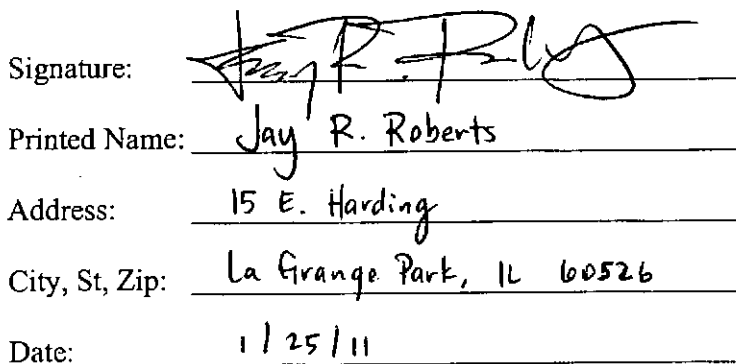 Signature:
Printed Name: Jay R. Roberts
Address: 15 E. Harding
City, St, Zip: La Grange Park, IL 60526
Date: 1/25/11